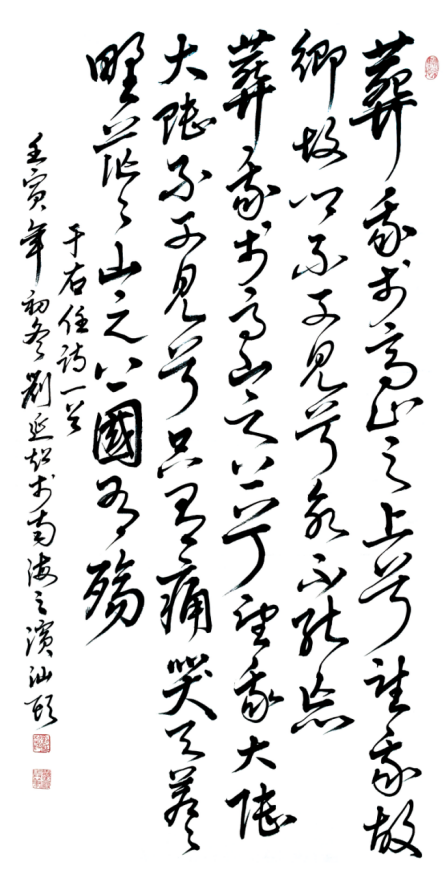 葬我於高山之上兮望我故
鄉故鄉不可見兮永不能忘
葬我於高山之上兮望我大陸
大陸不可見兮只有痛哭天蒼〻
野茫〻山之上國有殤
于右任詩一首
壬寅年初冬劉延於南海之濱汕頭